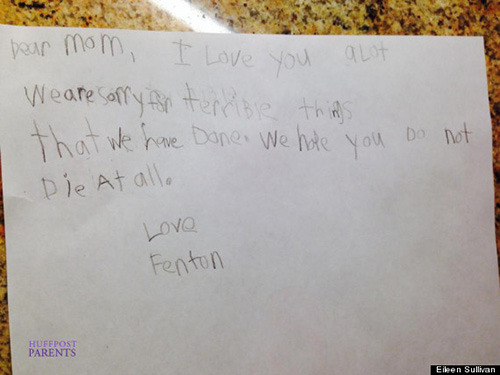 Dear mom, I Love you alot
We are sorry for terrible things
that we have Done. We hope you Do not
Die At all.
Love
Fenton
HUFFPOST
PARENTS
Eileen Sullivan